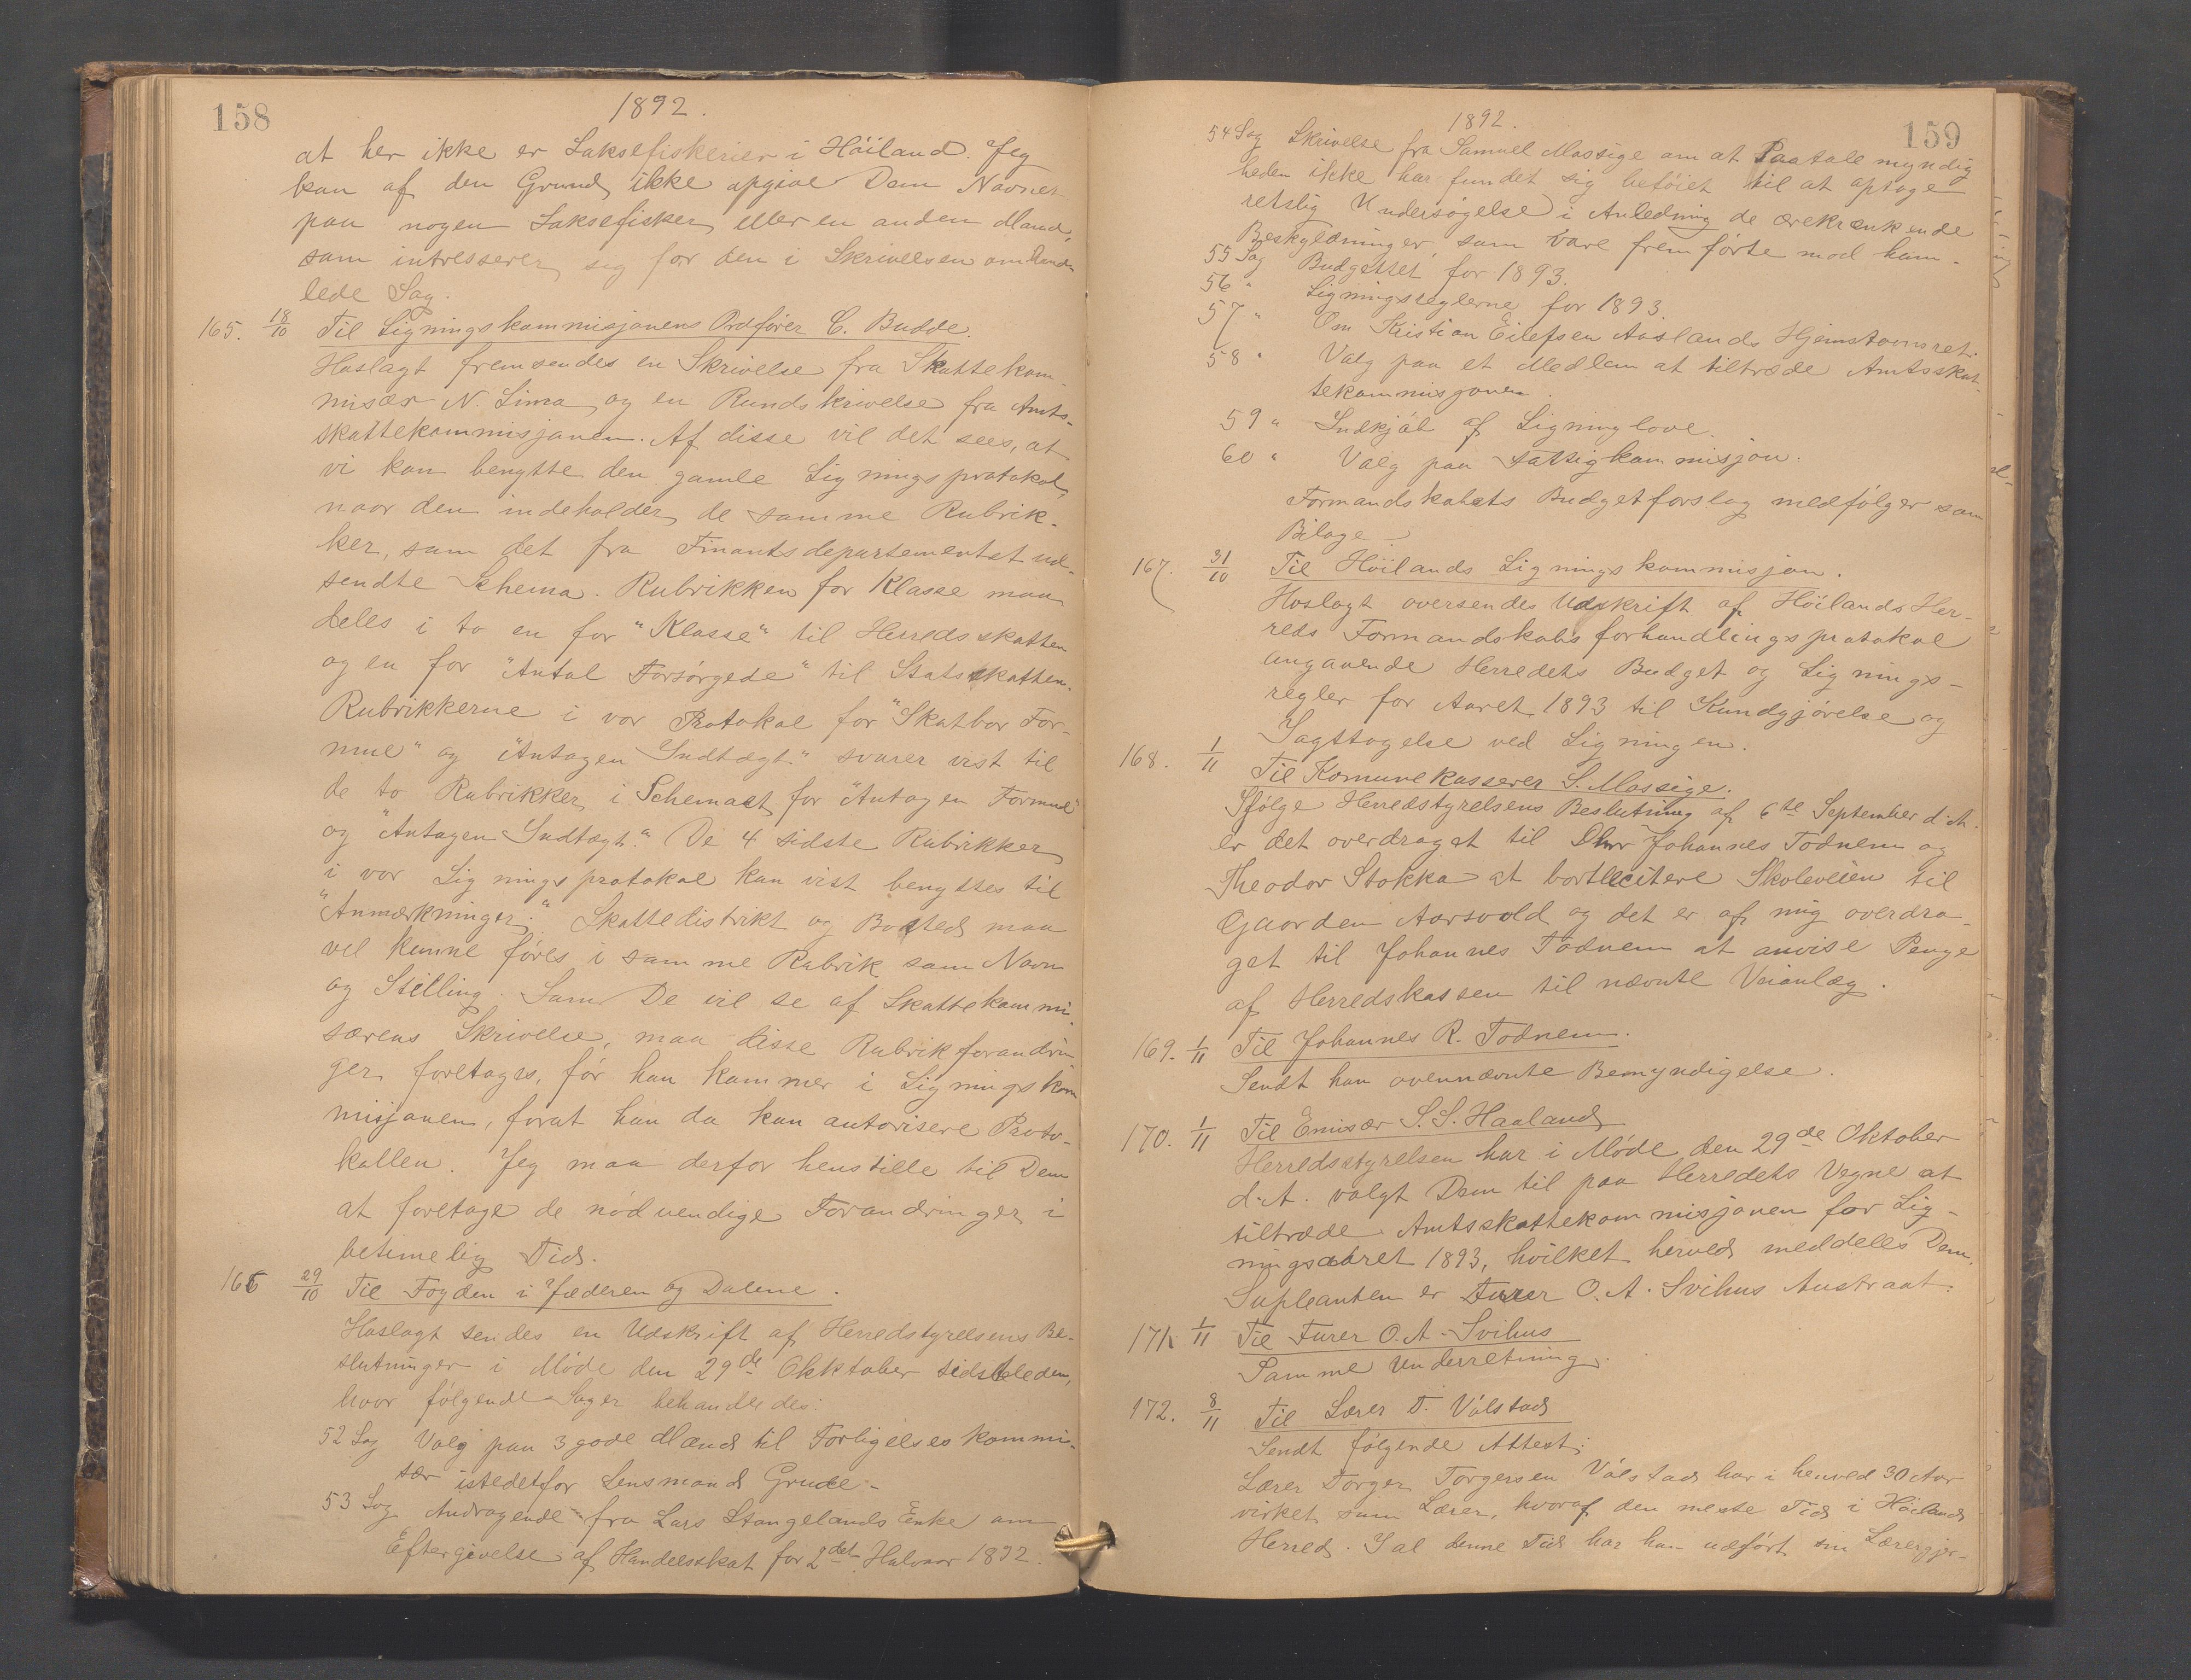 158
1892.
at her ikke er Laksefiskerier i Höiland. Jeg
kan af den Grund ikke opgive Dem Navnet
paa nogen Laksefisker eller en anden Mand,
som intresserer sig for den i Skrivelsen omhand
lede Sag.
165. 18/10 Til Ligningskommisjonens Ordfører C. Budde.
Hoslagt fremsendes en Skrivelse fra Skattekom-
misær N. Lima og en Rundskrivelse fra Amts-
skattekommisjonen. Af disse vil det sees, at
vi kan benytte den gamle Ligningsprotokol,
naar den indeholder de samme Rubrik-
ker, som det fra Finantsdepartementet ud-
sendte Schema. Rubrikken for Klasse maa
deles i to en for "Klasse" til Herredsskatten
og en for "Antal Forsørgede" til Statsskatten.
Rubrikkerne i vor Protokol for "Skatbar For-
mue" og "Antagen Indtægt." svarer vist til
de to Rubrikker i Schemaet for "Antagen Formue"
og "Antagen Indtægt." De 4 sidste Rubrikker
i vor Ligningsprotokol kan vist benyttes til
"Anmærkninger." Skattedistrikt og Bosted maa
vel kunne føres i samme Rubrik som Navn
og Stilling. Som De vil se af Skattekommi
særens Skrivelse, maa disse Rubrikforandrin
ger foretages, før han kommer i Ligningskom
misjonen, forat han da kan autorisere Proto-
kollen. Jeg maa derfor henstille til Dem
at foretage de nødvendige Forandringer i
betimelig Tid.
166 29/10 Til Fogden i Jæderen og Dalene.
Hoslagt sendes en Udskrift af Herredstyrelsens Be-
slutninger i Møde den 29de Okktober sidstleden,
hvor følgende Sager behandledes:
52 Sag Valg paa 3 gode Mænd til Forligelseskommi-
sær istedetfor Lensmand Grude.-
53 Sag Andragende fra Lars Stangelands Enke om
Eftergivelse af Handelsskat for 2det Halvaar 1892.
159
1892.
54 Sag Skrivelse fra Samuel Mossige om at Paatalemyndig
heden ikke har fundet sig beføiet til at optage
retslig Undersøgelse i Anledning de ærekrænkende
Beskyldninger som vare fremførte mod ham.
55 Sag Budgettet for 1893.
56 " Ligningsreglerne for 1893.
57 " Om Kristian Eilefsen Aaslands Hjemstavnsret.
58 " Valg paa et Medlem at tiltræde Amtsskat-
tekommisjonen.
59 " Indkjøb af Ligninglove.
60 " Valg paa Fattigkommisjon.
Formandskabets Budgetforslag medfølger som
Bilage.
167. 31/10 Til Höilands Ligningskommisjon.
Hoslagt oversendes Udskrift af Höilands Her-
reds Formandskabs forhandlingsprotokol
angaaende Herredets Budget og Lignings-
regler for Aaret 1893 til Kundgjørelse og
Iagttagelse ved Ligningen.
168. 1/11 Til Komunekasserer S. Mossige.
Ifølge Herredstyrelsens Beslutning af 6te September d.A.
er det overdraget til Dhrr Johannes Todnem og
Theodor Stokka at bortlicitere Skoleveien til
Gaarden Aarsvold og det er af mig overdra-
get til Johannes Todnem at anvise Penge
af Herredskassen til nævnte Veianlæg.
169. 1/11 Til Johannes R. Todnem.
Sendt han ovennævnte Bemyndigelse.
170. 1/11 Til Emisær S. S. Haaland
Herredsstyrelsen har i Møde den 29de Oktober
d.A. valgt Dem til paa Herredets Vegne at
tiltræde Amtsskattekommisjonen for Lig-
ningsaaret 1893, hvilket herved meddeles Dem.
Supleanten er Furer O. A. Svihus Austraat.
171. 1/11 Til Furer O. A. Svihus
Samme Underretning.
172. 8/11 Til Lærer T. Vølstad
Sendt følgende Attest:
Lærer Torger Torgersen Vølstad har i henved 30 Aar
virket som Lærer, hvoraf den meste Tid i Höilands
Herred. I al denne Tid har han udført sin Lærergjer-